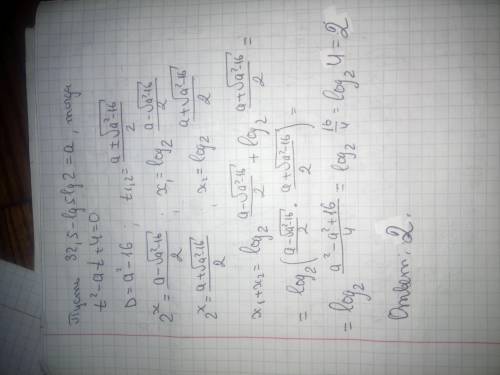 Пусть 32,5-lg5lg2=a, тогда
t²-at+4=0
D=a²-16; t₁,₂=(a±√(a²-16))/2
2ˣ=(a-√(a²-16))/2; x₁=log₂ (a-√(a²-16))/2
2ˣ=(a+√(a²-16))/2; x₂=log₂ (a+√(a²-16))/2
x₁+x₂=log₂ (a-√(a²-16))/2 + log₂ (a+√(a²-16))/2 =
= log₂((a-√(a²-16))/2 · (a+√(a²-16))/2) =
= log₂ (a²-a²+16)/4 = log₂ 16/4 = log₂ 4=2
Ответ: 2.